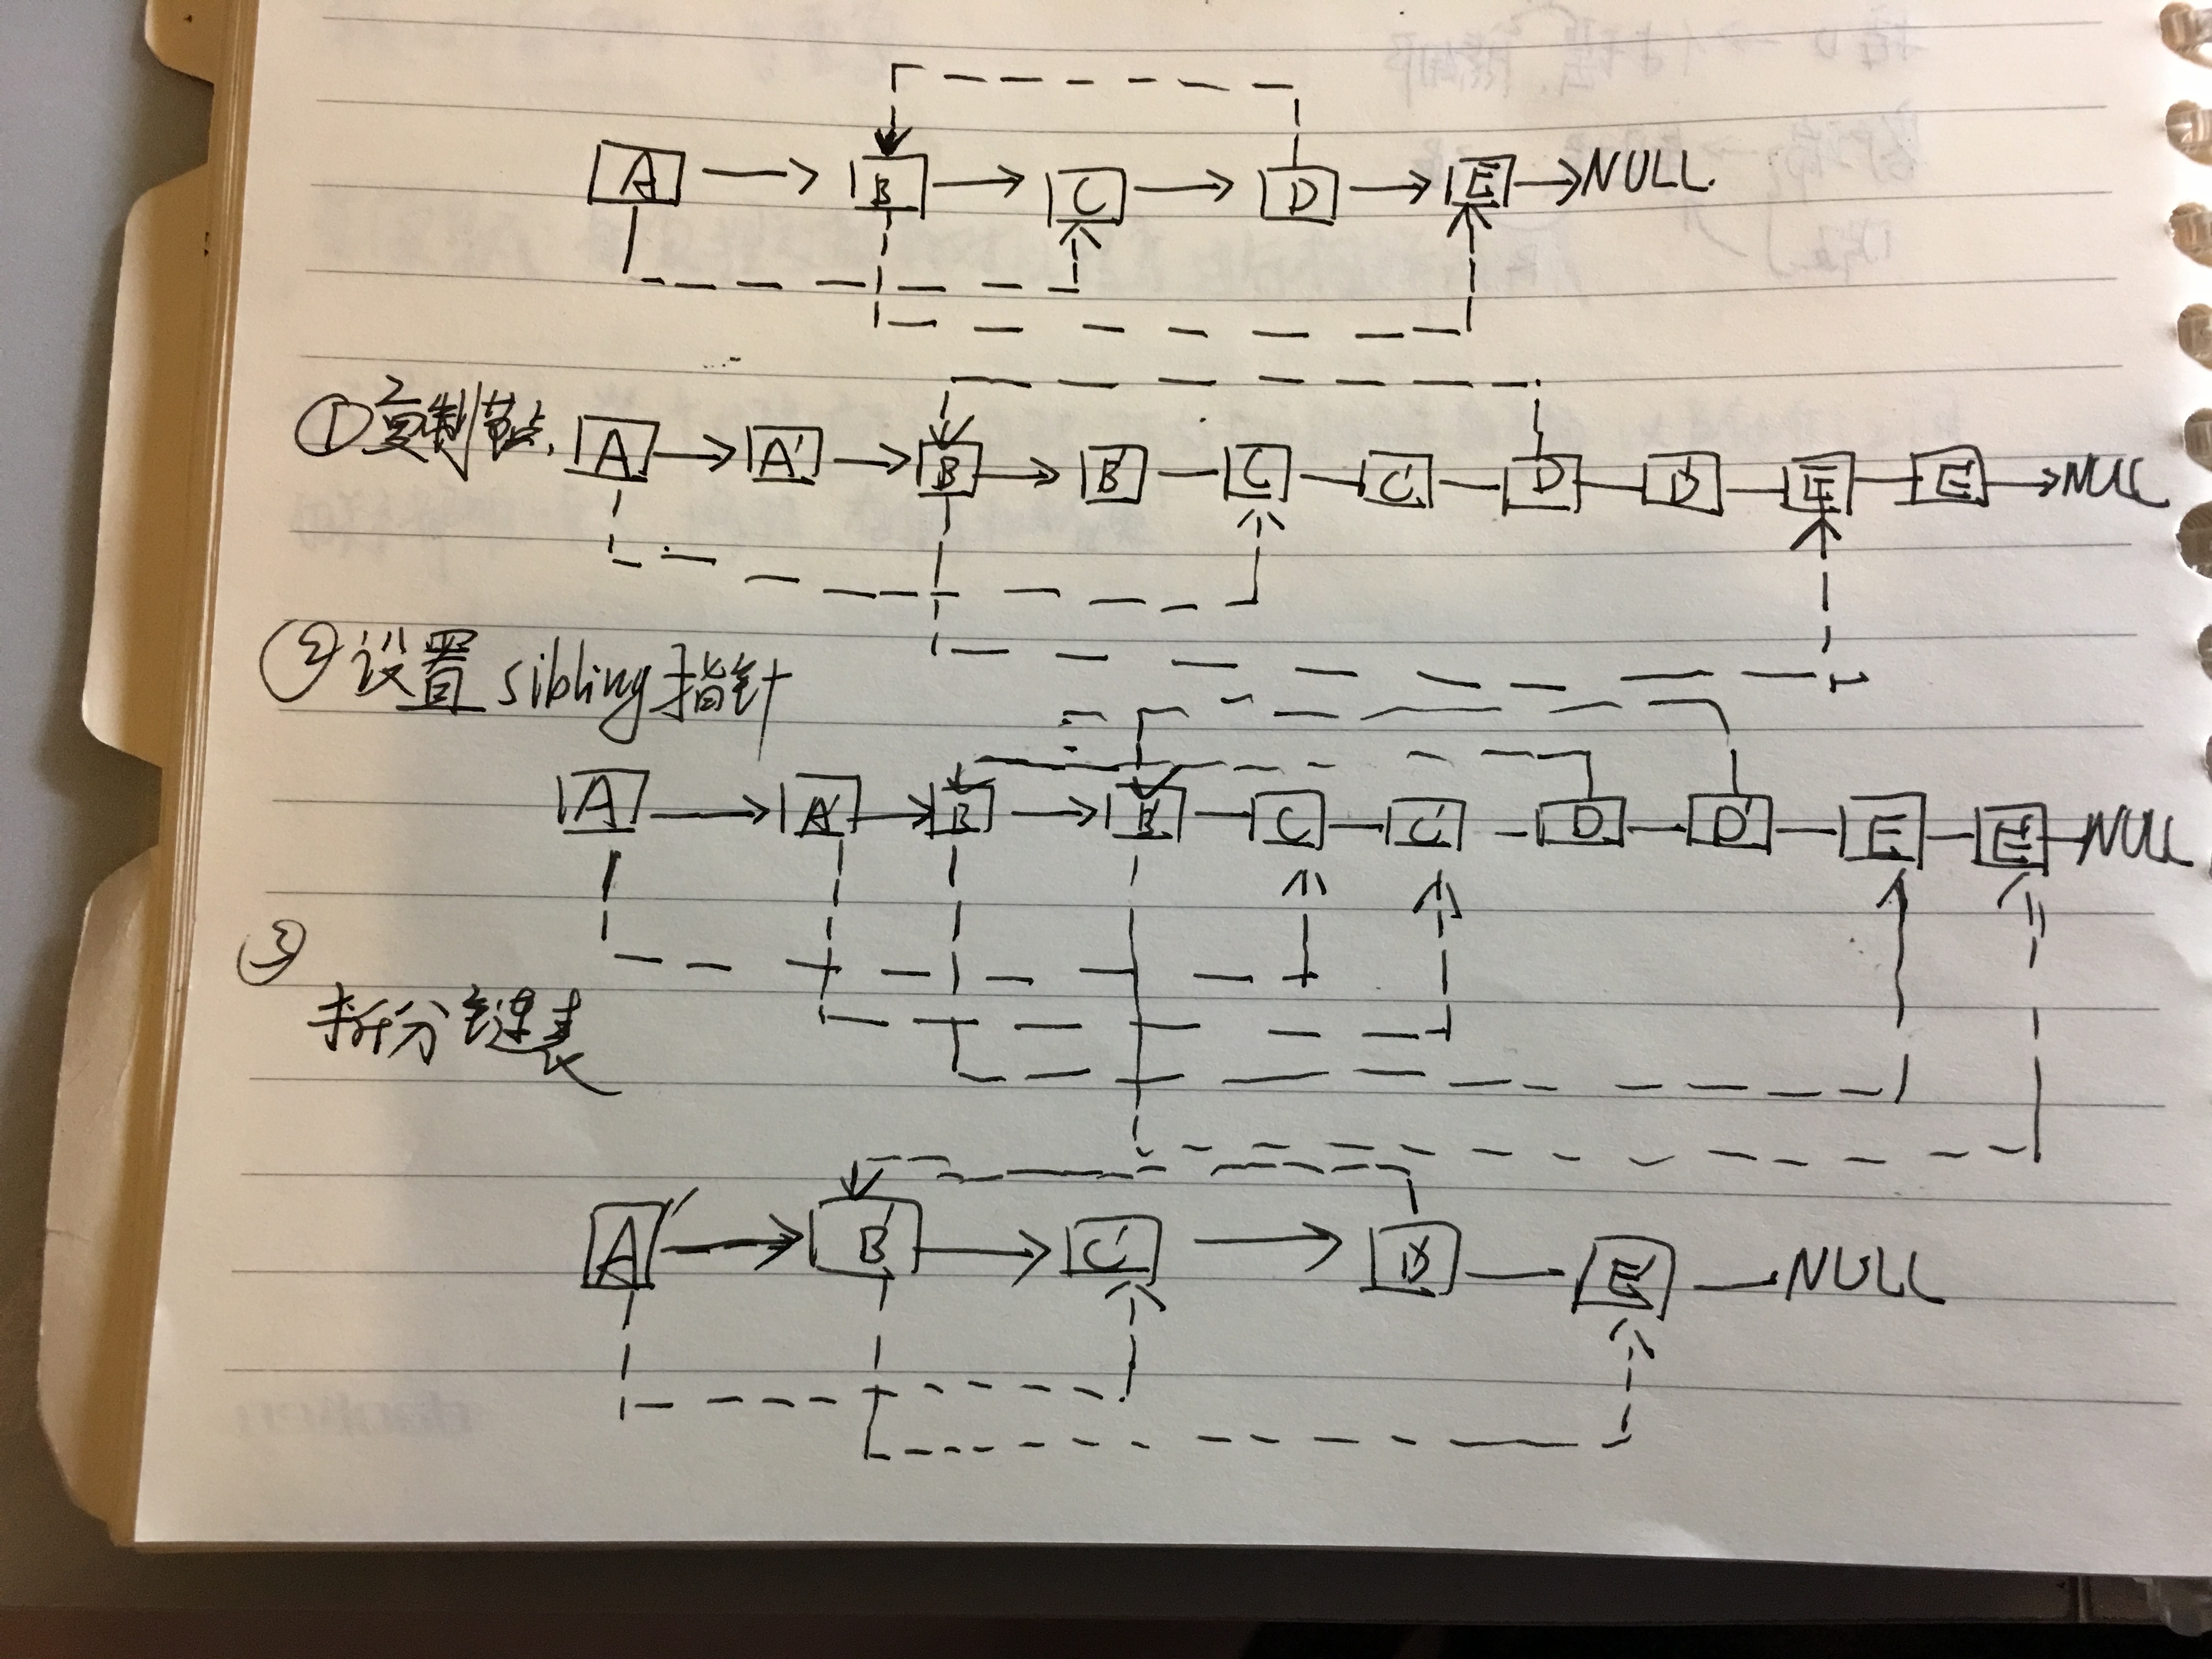 A → B → C → D → E → NULL
①复制链.
A → A' → B → B' — C — C' — D — D' — E — E' → NULL
②设置 sibling指针
A → A' → B → B' — C — C' — D — D' — E — E' → NULL
③
拆分链表
A' → B' → C' → D' — E' — NULL